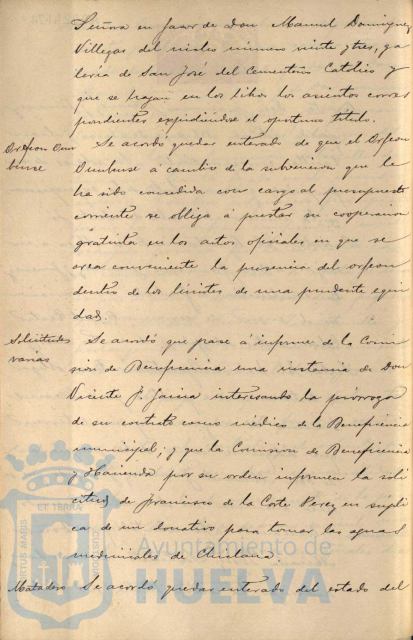 Señora en favor de Don Manuel Dominguez
Villegas del nicho número veinte y tres, ga
lería de San José del Cementerio Católico y
que se hagan en los libros los asientos corres
pondientes expidiéndose el oportuno título.
Orfeon Onu
bense
Se acordó quedar enterado de que el Orfeon
Onubense á cambio de la subvencion que le
ha sido concedida con cargo al presupuesto
corriente se obliga á prestar su cooperacion
gratuita en los actos oficiales en que se
crea conveniente la presencia del orfeon
dentro de los límites de una prudente equi
dad.
Solicitudes
varias
Se acordó que pase á informe de la Comi
sion de Beneficencia una instancia de Don
Vicente J. interesando la prórroga
de su contrato como médico de la Beneficencia
municipal; y que la Comision de Beneficencia
y Hacienda por su orden informen la soli
citud de Francisco de la Corte Perez en súpli
ca de un donativo para tomar las aguas
medicinales de
Matadero Se acordó quedar enterado del estado del
ET TERRA
PORTUS MARIS
CUSTODIA
Ayuntamiento de
HUELVA